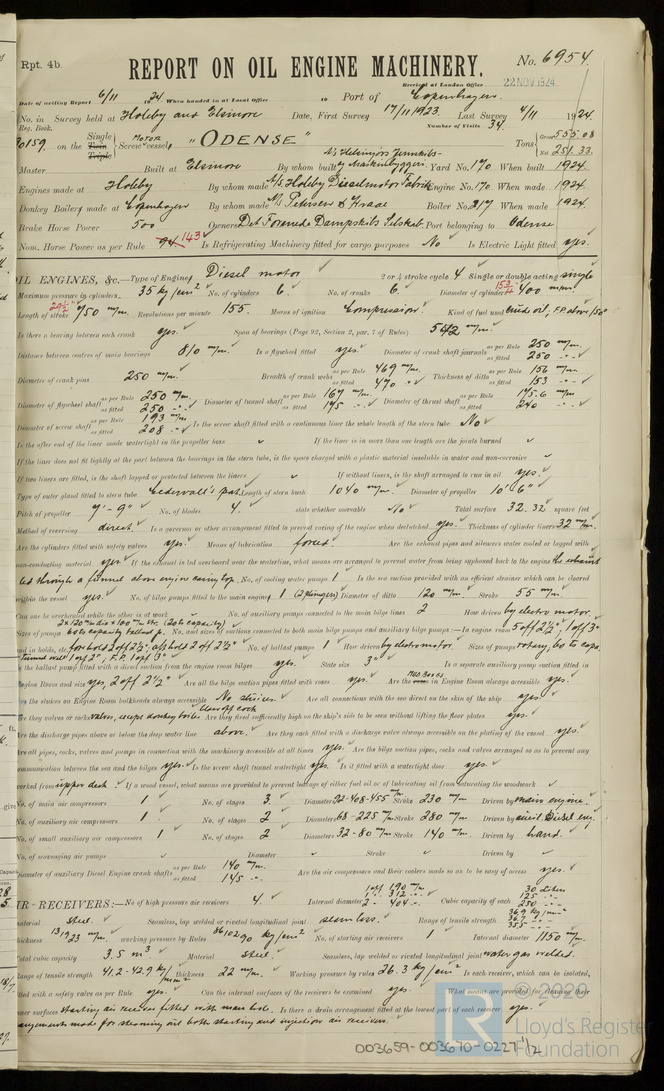 Rpt. 4b.
REPORT ON OIL ENGINE MACHINERY.
No. 6954
Received at London Office
22 NOV 1924
Date of writing Report 6/11 1924 When handed in at Local Office 19 Port of Copenhagen.
No. in Survey held at Holeby and Elsinore Date, First Survey 17/11 1923. Last Survey 4/11 1924.
Reg. Book. Number of Visits 34.
on the Single Twin Triple Motor Screw vessel "ODENSE" Tons Gross 555.08 Net 251.33.
Master Built at Elsinore By whom built Yard No. 170 When built 1924.
Engines made at Holeby By whom made A/S. Holeby Dieselmotor Fabrik Engine No. 170 When made 1924.
Donkey Boilers made at Copenhagen By whom made Boiler No. 217 When made 1924.
Brake Horse Power 500 Owners Det Forenede Dampskibs Selskab. Port belonging to Odense
Nom. Horse Power as per Rule 94 143 Is Refrigerating Machinery fitted for cargo purposes No Is Electric Light fitted yes.
OIL ENGINES, &c.—Type of Engines Diesel motor 2 or 4 stroke cycle 4 Single or double acting single
Maximum pressure in cylinders 35 kg/cm² No. of cylinders 6. No. of cranks 6. Diameter of cylinders 400 m/m.
Length of stroke Revolutions per minute 155. Means of ignition Compression. Kind of fuel used
Is there a bearing between each crank yes. Span of bearings (Page 92, Section 2, par. 7 of Rules) 542 m/m.
Distance between centres of main bearings 810 m/m. Is a flywheel fitted yes. Diameter of crank shaft journals as per Rule 250 m/m. as fitted 250
Diameter of crank pins 250 m/m. Breadth of crank webs as per Rule 469 m/m. as fitted 470 Thickness of ditto as per Rule 156 m/m. as fitted 153
Diameter of flywheel shaft as per Rule 250 m/m. as fitted 250 Diameter of tunnel shaft as per Rule 167 m/m. as fitted 175 Diameter of thrust shaft as per Rule 175.6 m/m. as fitted 240
Diameter of screw shaft as per Rule 193 m/m. as fitted 208 Is the screw shaft fitted with a continuous liner the whole length of the stern tube No
Is the after end of the liner made watertight in the propeller boss If the liner is in more than one length are the joints burned
If the liner does not fit tightly at the part between the bearings in the stern tube, is the space charged with a plastic material insoluble in water and non-corrosive
If two liners are fitted, is the shaft lapped or protected between the liners If without liners, is the shaft arranged to run in oil yes.
Type of outer gland fitted to stern tube Cederwall's pat. Length of stern bush 1040 m/m. Diameter of propeller 10' 6"
Pitch of propeller 9'-9" No. of blades 4. state whether moveable No Total surface 32.32 square feet
Method of reversing direct. Is a governor or other arrangement fitted to prevent racing of the engine when declutched yes. Thickness of cylinder liners 32 m/m.
Are the cylinders fitted with safety valves yes. Means of lubrication forced Are the exhaust pipes and silencers water cooled or lagged with
non-conducting material yes If the exhaust is led overboard near the waterline, what means are arranged to prevent water from being syphoned back to the engine the exhaust
led through a funnel above engine casing top. No. of cooling water pumps 1 Is the sea suction provided with an efficient strainer which can be cleared
within the vessel yes. No. of bilge pumps fitted to the main engines 1 (2 plungers) Diameter of ditto 120 m/m Stroke 55 m/m.
Can one be overhauled while the other is at work No. of auxiliary pumps connected to the main bilge lines 2 How driven by electro motor.
Sizes of pumps No. and sizes of suctions connected to both main bilge pumps and auxiliary bilge pumps:—In engine room 5 off 2½" 1 off 3"
and in holds, etc. forhold 2 off 2½", afthold 2 off 2½" No. of ballast pumps 1 How driven by electromotor. Sizes of pumps rotary, 60 to. capa.
Is the ballast pump fitted with a direct suction from the engine room bilges yes. State size 3" Is a separate auxiliary pump suction fitted in
Engine Room and size yes, 2 off 2½" Are all the bilge suction pipes fitted with roses yes. Are the mud boxes in Engine Room always accessible yes.
Are the sluices on Engine Room bulkheads always accessible No sluices. Are all connections with the sea direct on the skin of the ship yes
Are they valves or cocks valves, except donkey boiler blow off cock Are they fixed sufficiently high on the ship's side to be seen without lifting the floor plates yes.
Are the discharge pipes above or below the deep water line above. Are they each fitted with a discharge valve always accessible on the plating of the vessel yes.
Are all pipes, cocks, valves and pumps in connection with the machinery accessible at all times yes. Are the bilge suction pipes, cocks and valves arranged so as to prevent any
communication between the sea and the bilges yes. Is the screw shaft tunnel watertight yes. Is it fitted with a watertight door yes.
worked from upper deck. If a wood vessel, what means are provided to prevent leakage of either fuel oil or of lubricating oil from saturating the woodwork
No. of main air compressors 1 No. of stages 3. Diameters Stroke 230 m/m Driven by main engine.
No. of auxiliary air compressors 1 No. of stages 2 Diameters 68-225 m/m Stroke 280 m/m Driven by
No. of small auxiliary air compressors 1 No. of stages 2 Diameters 32-80 m/m Stroke 140 m/m. Driven by hand.
No. of scavenging air pumps Diameter Stroke Driven by
Diameter of auxiliary Diesel Engine crank shafts as per Rule 140 m/m. as fitted 145 Are the air compressors and their coolers made so as to be easy of access yes.
AIR-RECEIVERS:—No. of high pressure air receivers 4. Internal diameter Cubic capacity of each
material steel. Seamless, lap welded or riveted longitudinal joint seamless. Range of tensile strength
thickness working pressure by Rules No. of starting air receivers 1 Internal diameter 1150 m/m.
Total cubic capacity 3.5 m³ Material steel. Seamless, lap welded or riveted longitudinal joint water gas welded.
Range of tensile strength 41.2-42.9 kg/mm² thickness 22 m/m. Working pressure by rules 26.3 kg/cm² Is each receiver, which can be isolated,
fitted with a safety valve as per Rule yes. Can the internal surfaces of the receivers be examined yes. What means are provided for cleaning their
inner surfaces starting air receiver fitted with man hole. Is there a drain arrangement fitted at the lowest part of each receiver yes.
arrangements made for steaming out both starting and injection air receivers.
© 2020
Lloyd's Register
Foundation
003659-003670-0227 1/2